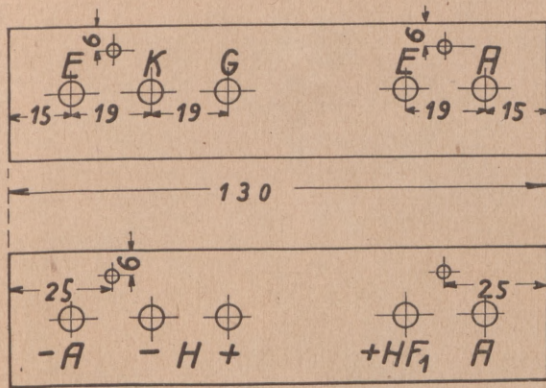 6 6
E K G E A
15 19 19 19 15
130
6
25 25
-A - H + +HF₁ A